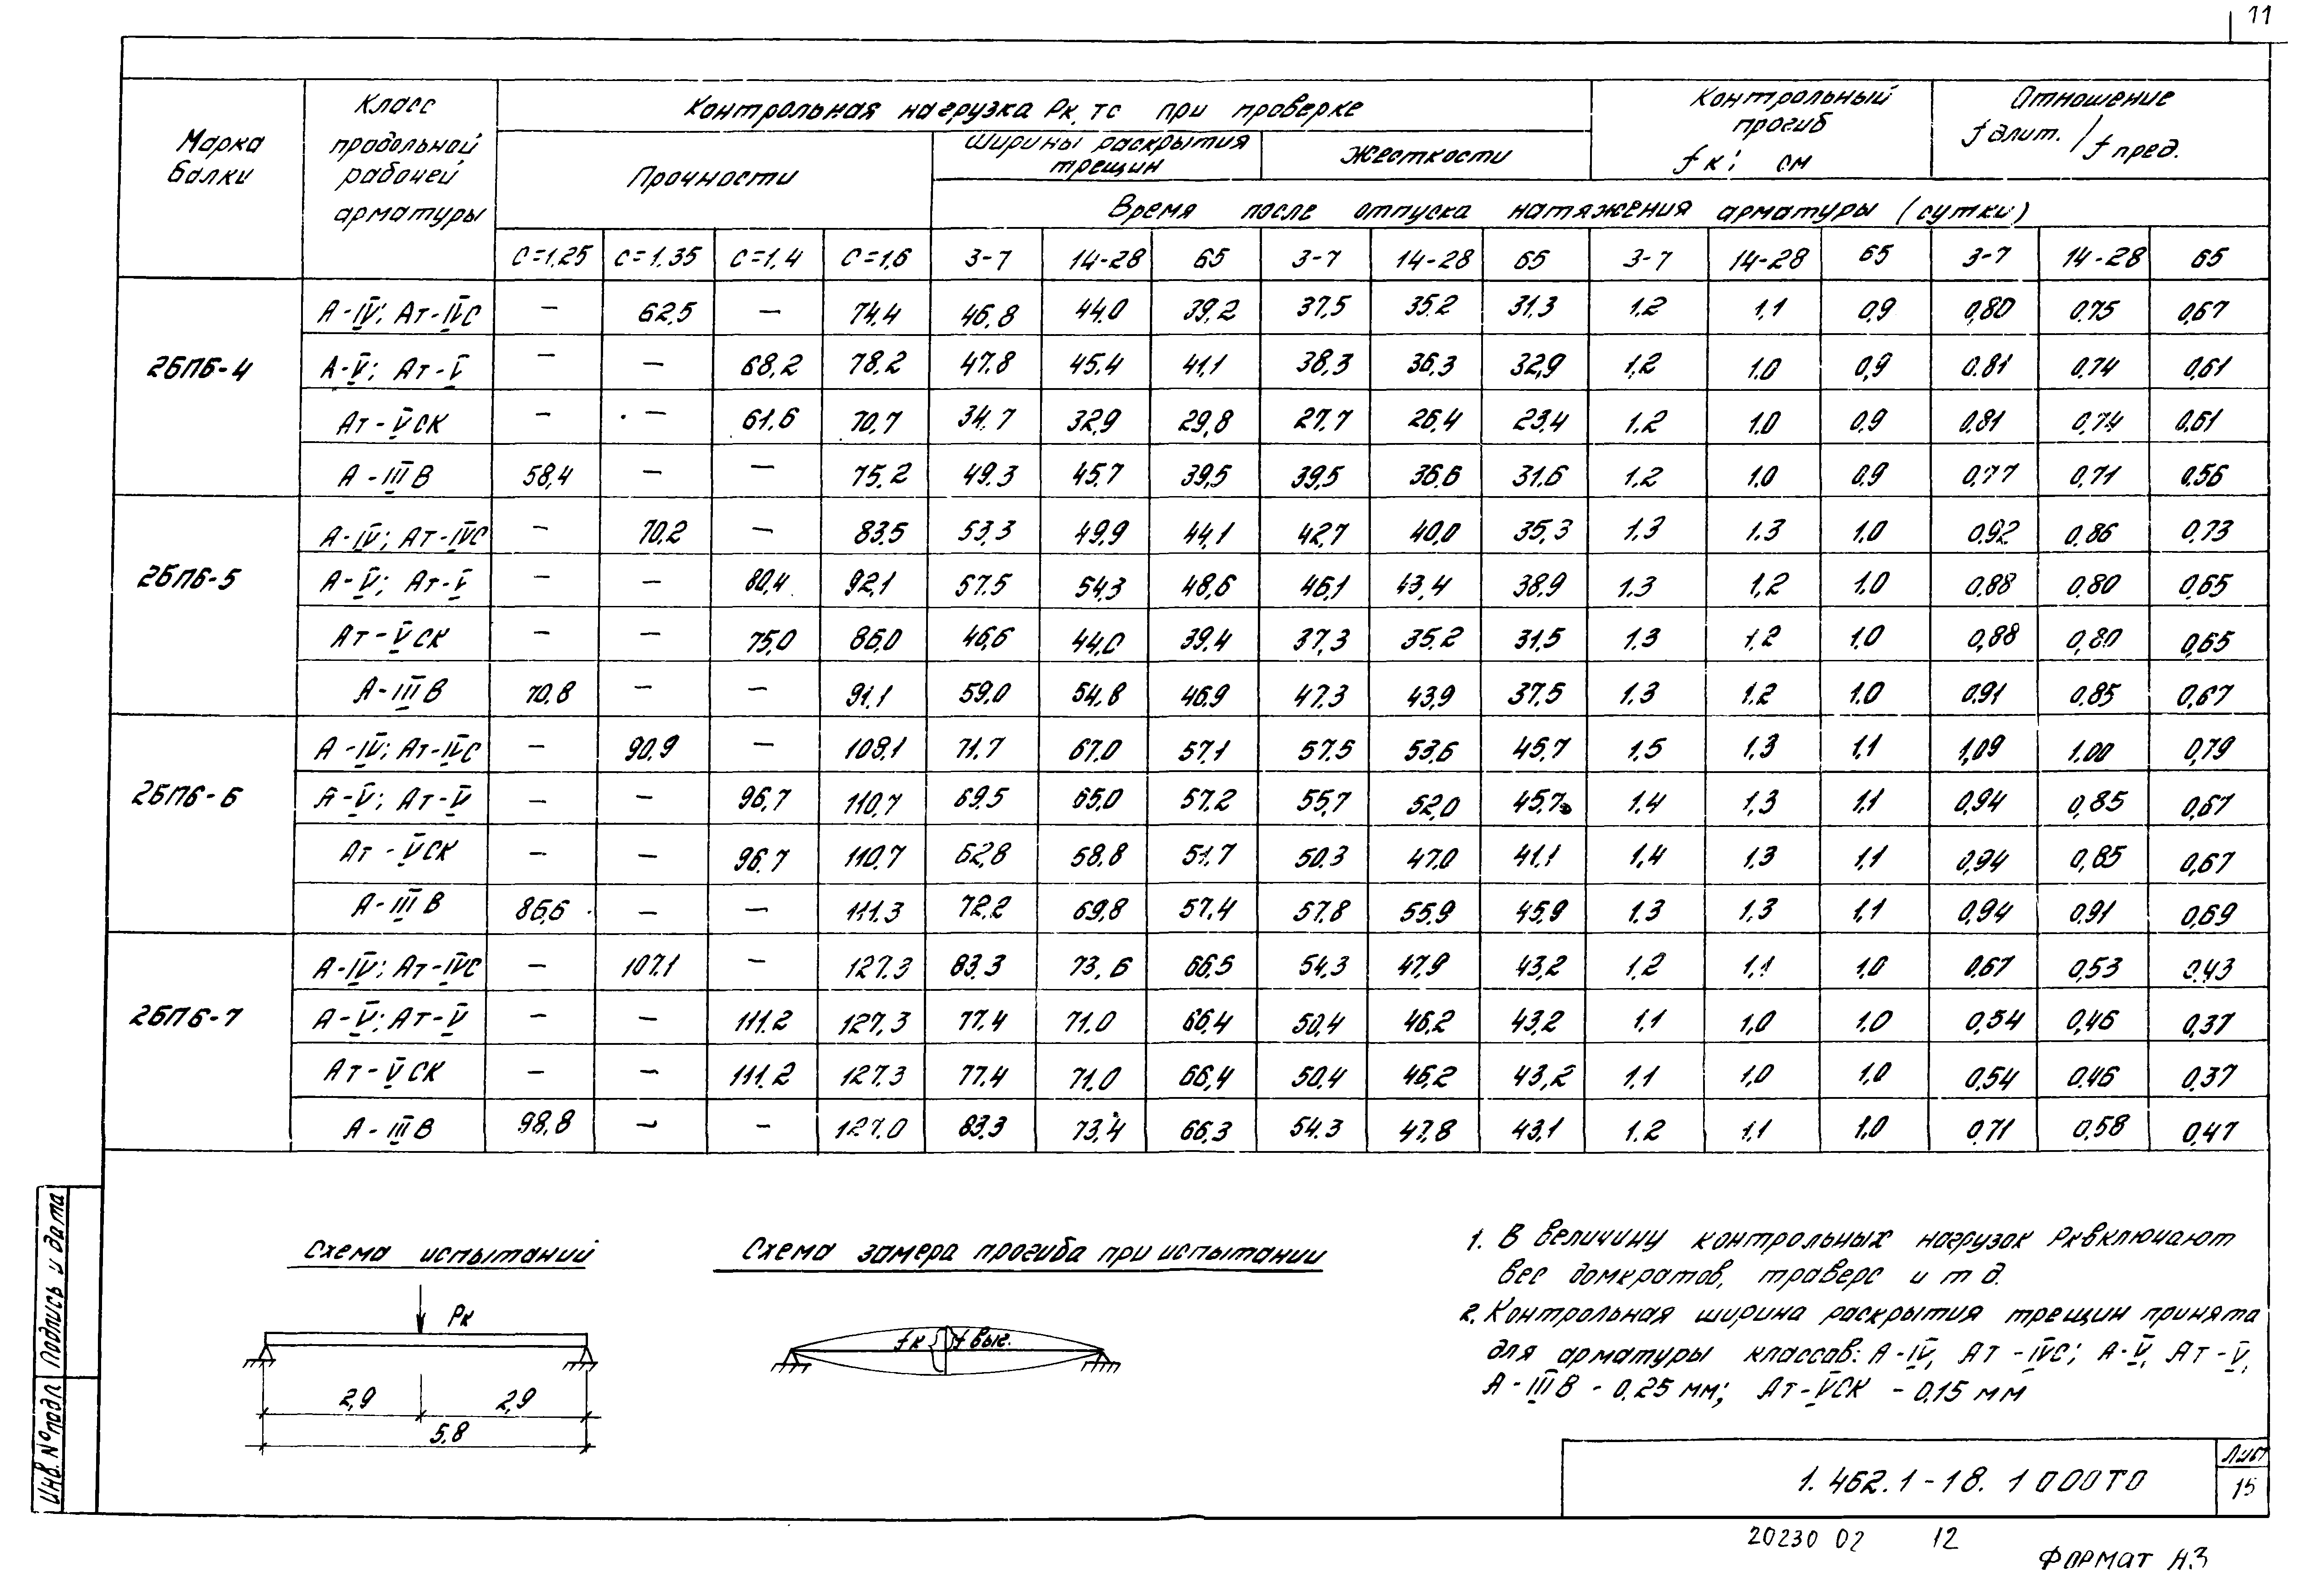 11
Марка балки | Класс продольной рабочей арматуры | Контрольная нагрузка Рк, тс при проверке | Контрольный прогиб fк; см | Отношение f длит. / f пред.
Прочности | Ширины раскрытия трещин | Жесткости
Время после отпуска натяжения арматуры (сутки)
С=1,25 | С=1,35 | С=1,4 | С=1,6 | 3-7 | 14-28 | 65 | 3-7 | 14-28 | 65 | 3-7 | 14-28 | 65 | 3-7 | 14-28 | 65
2БП6-4
А-IV; Ат-IVС | — | 62,5 | — | 74,4 | 46,8 | 44.0 | 39,2 | 37,5 | 35.2 | 31,3 | 1.2 | 1,1 | 0,9 | 0,80 | 0.75 | 0,67
А-V; Ат-V | — | — | 68,2 | 78.2 | 47.8 | 45.4 | 41,1 | 38,3 | 36,3 | 32,9 | 1,2 | 1.0 | 0,9 | 0.81 | 0.74 | 0,61
Ат-VСК | — | — | 61.6 | 70,7 | 34.7 | 32,9 | 29,8 | 27.7 | 26,4 | 23,4 | 1.2 | 1.0 | 0,9 | 0,81 | 0,74 | 0,61
А-IIIВ | 58,4 | — | — | 75.2 | 49.3 | 45.7 | 39,5 | 39,5 | 36.6 | 31.6 | 1,2 | 1,0 | 0.9 | 0,77 | 0,71 | 0,56
2БП6-5
А-IV; Ат-IVС | — | 70,2 | — | 83.5 | 53,3 | 49,9 | 44,1 | 42,7 | 40,0 | 35,3 | 1,3 | 1.3 | 1,0 | 0.92 | 0,86 | 0.73
А-V; Ат-V | — | — | 80,4 | 92,1 | 57.5 | 54,3 | 48,6 | 46,1 | 43,4 | 38,9 | 1.3 | 1,2 | 1.0 | 0.88 | 0.80 | 0,65
Ат-VСК | — | — | 75,0 | 86,0 | 46,6 | 44,0 | 39.4 | 37,3 | 35.2 | 31,5 | 1.3 | 1,2 | 1.0 | 0,88 | 0,80 | 0,65
А-IIIВ | 70,8 | — | — | 91.1 | 59,0 | 54,8 | 46,9 | 47.3 | 43,9 | 37,5 | 1.3 | 1.2 | 1.0 | 0.91 | 0.85 | 0,67
2БП6-6
А-IV; Ат-IVС | — | 90,9 | — | 108,1 | 71.7 | 67.0 | 57,1 | 57.5 | 53,6 | 45,7 | 1,5 | 1,3 | 1,1 | 1,09 | 1.00 | 0,79
А-V; Ат-V | — | — | 96,7 | 110,7 | 69.5 | 65,0 | 57.2 | 55,7 | 52,0 | 45,7 | 1.4 | 1,3 | 1,1 | 0,94 | 0,85 | 0,67
Ат-VСК | — | — | 96.7 | 110.7 | 62,8 | 58.8 | 51,7 | 50.3 | 47.0 | 41,1 | 1,4 | 1,3 | 1,1 | 0,94 | 0,85 | 0,67
А-IIIВ | 86,6 | — | — | 111.3 | 72,2 | 69,8 | 57.4 | 57.8 | 55,9 | 45,9 | 1.3 | 1,3 | 1,1 | 0,94 | 0.91 | 0,69
2БП6-7
А-IV; Ат-IVС | — | 107.1 | — | 127.3 | 83.3 | 73,6 | 66,5 | 54,3 | 47,9 | 43,2 | 1.2 | 1,1 | 1,0 | 0.67 | 0,53 | 0,43
А-V; Ат-V | — | — | 111.2 | 127,3 | 77.4 | 71.0 | 66,4 | 50,4 | 46,2 | 43,2 | 1,1 | 1,0 | 1.0 | 0,54 | 0,46 | 0,37
Ат-VСК | — | — | 111.2 | 127.3 | 77.4 | 71.0 | 66,4 | 50,4 | 46,2 | 43,2 | 1.1 | 1,0 | 1,0 | 0,54 | 0.46 | 0.37
А-IIIВ | 98,8 | — | — | 127.0 | 83.3 | 73,4 | 66,3 | 54.3 | 47,8 | 43,1 | 1.2 | 1,1 | 1,0 | 0,71 | 0,58 | 0,47
Схема испытаний
Рк
2,9 2,9
5.8
Схема замера прогиба при испытании
fк f выг.
1. В величину контрольных нагрузок Рк включают
вес домкратов, траверс и т д.
2. Контрольная ширина раскрытия трещин принята
для арматуры классов: А-IV, Ат-IVС; А-V, Ат-V,
А-IIIВ - 0,25 мм; Ат-VСК - 0,15 мм
Инв. № подл. Подпись и дата
1.462.1-18. 1 000ТО
Лист
15
20230 02 12
Формат А3